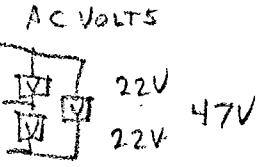 AC VOLTS
V
V
V
22V
22V
47V